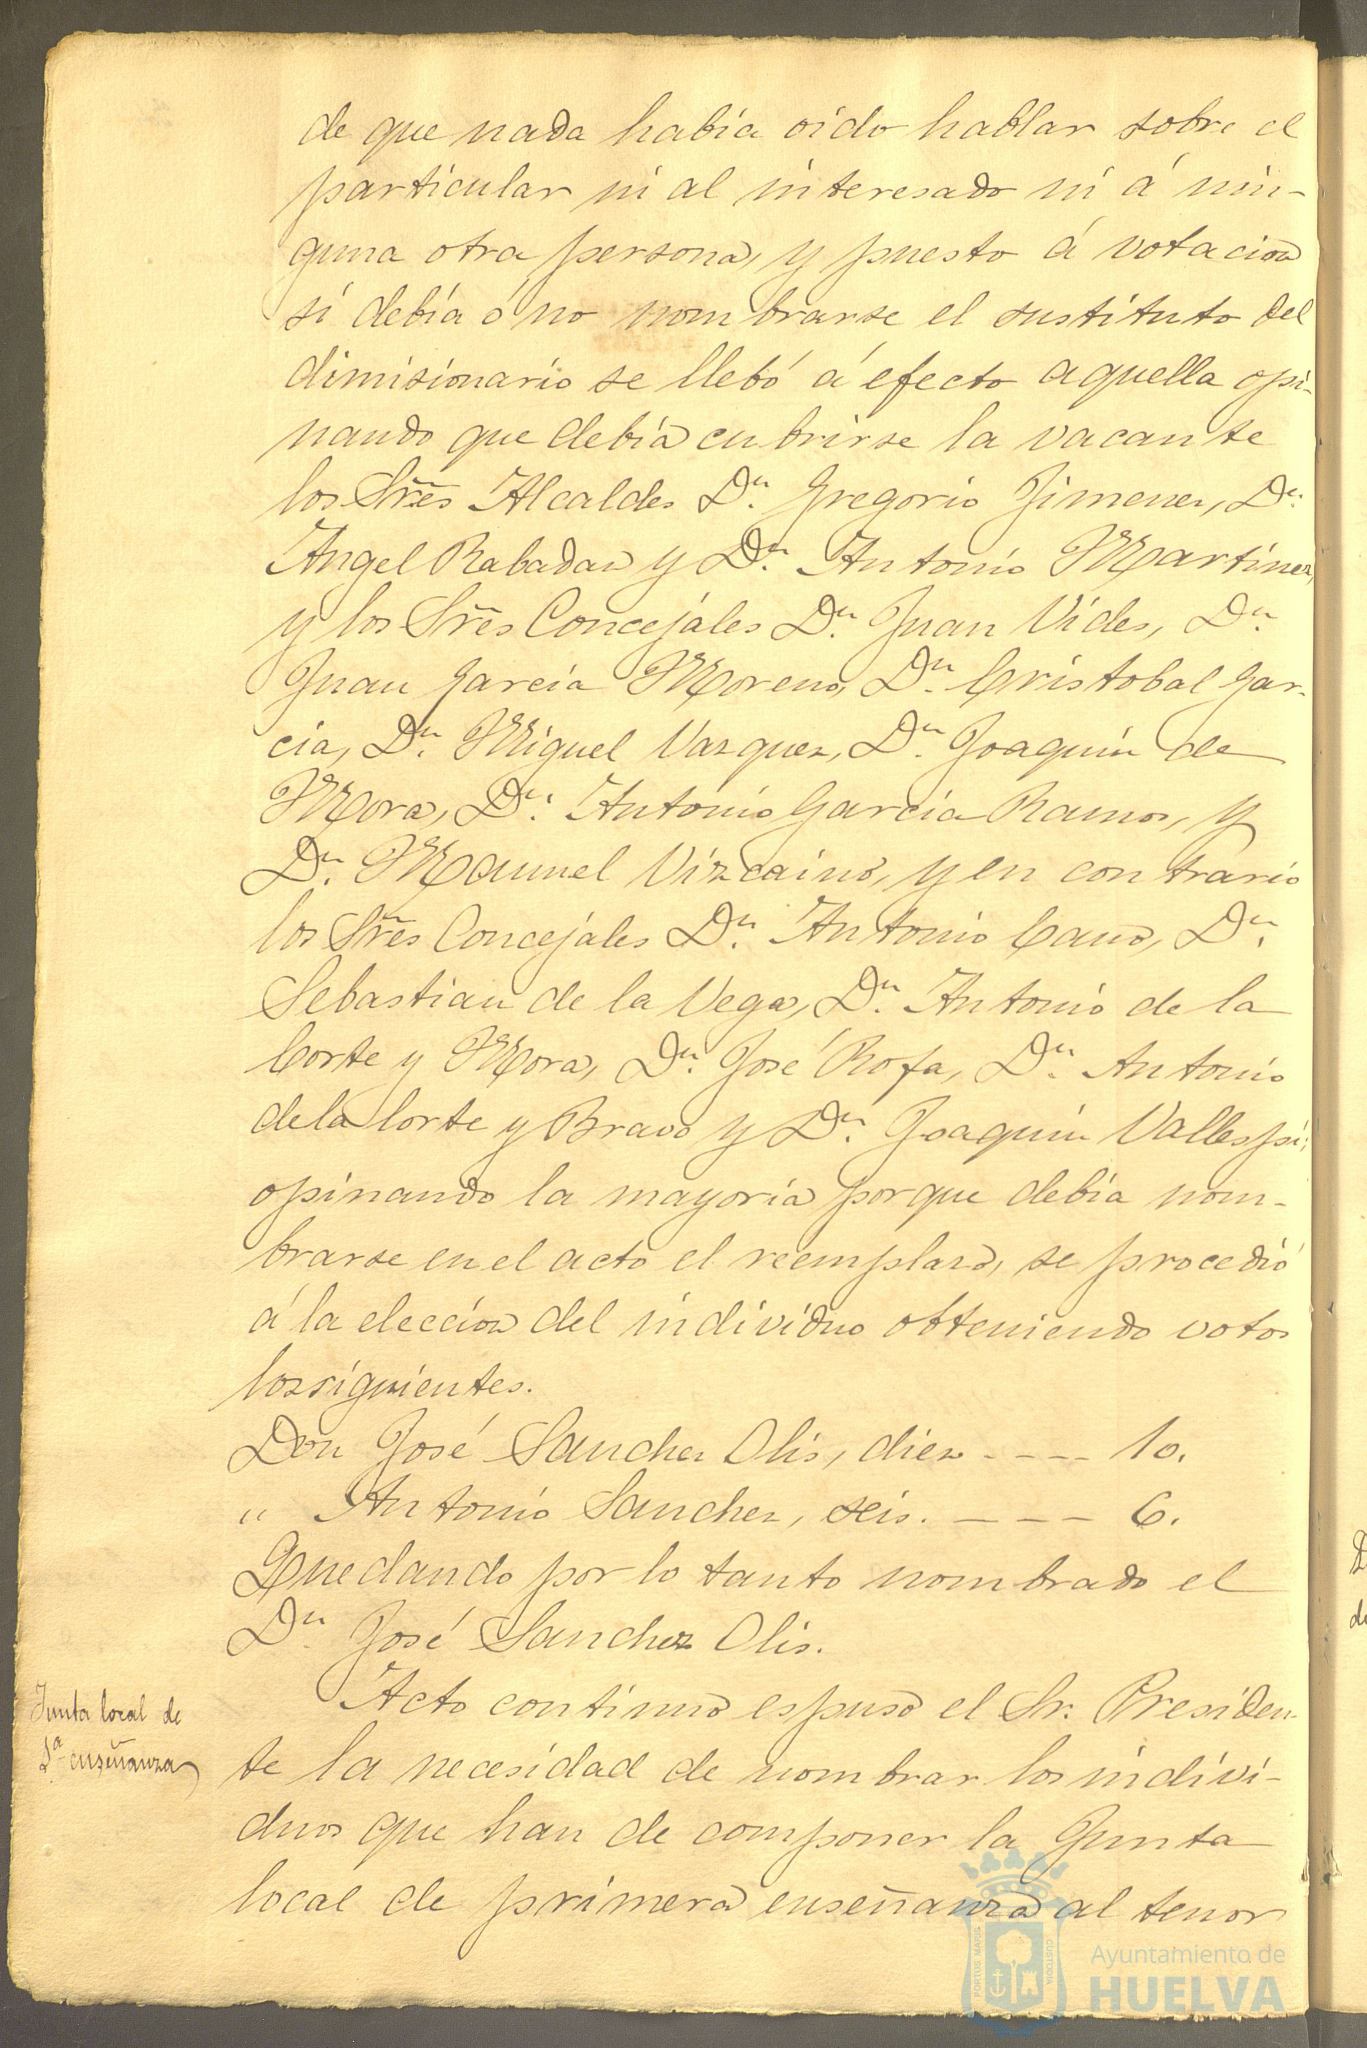 de que nada habia oido hablar sobre el
particular ni al interesado ni á nin-
guna otra persona, y puesto á votacion
si debia ó no nombrarse el sustituto del
dimisionario se llebó á efecto aquella opi-
nando que debia cubrirse la vacante
los Sres Alcaldes Dn. Gregorio Jimenez, Dn.
Angel Rabadan y Dn. Antonio Martinez,
y los Sres Concejales Dn. Juan Vides, Dn.
Juan Garcia Moreno, Dn. Cristobal Gar-
cia, Dn. Miguel Vazquez, Dn. Joaquin de
Mora, Dn. Antonio Garcia Ramos, y
Dn. Manuel Vizcaino, y en contrario
los Sres Concejales Dn. Antonio Cano, Dn.
Sebastian de la Vega, Dn. Antonio de la
Corte y Mora, Dn. José Rofa, Dn. Antonio
de la Corte y Bravo y Dn. Joaquin Vallespi;
opinando la mayoria porque debia nom-
brarse en el acto el reemplazo, se procedió
á la eleccion del individuo obteniendo votos
los siguientes.
Don José Sanchez Olis, diez ---- 10.
" Antonio Sanchez, seis. --- 6.
Quedando por lo tanto nombrado el
Dn. José Sanchez Olis.
Junta local de
1ª enseñanza
Acto continuo espuso el Sr. Presiden-
te la necesidad de nombrar los indivi-
duos que han de componer la Junta
local de primera enseñanza al tenor
PORTUS MARIS
CUSTODIA
Ayuntamiento de
HUELVA